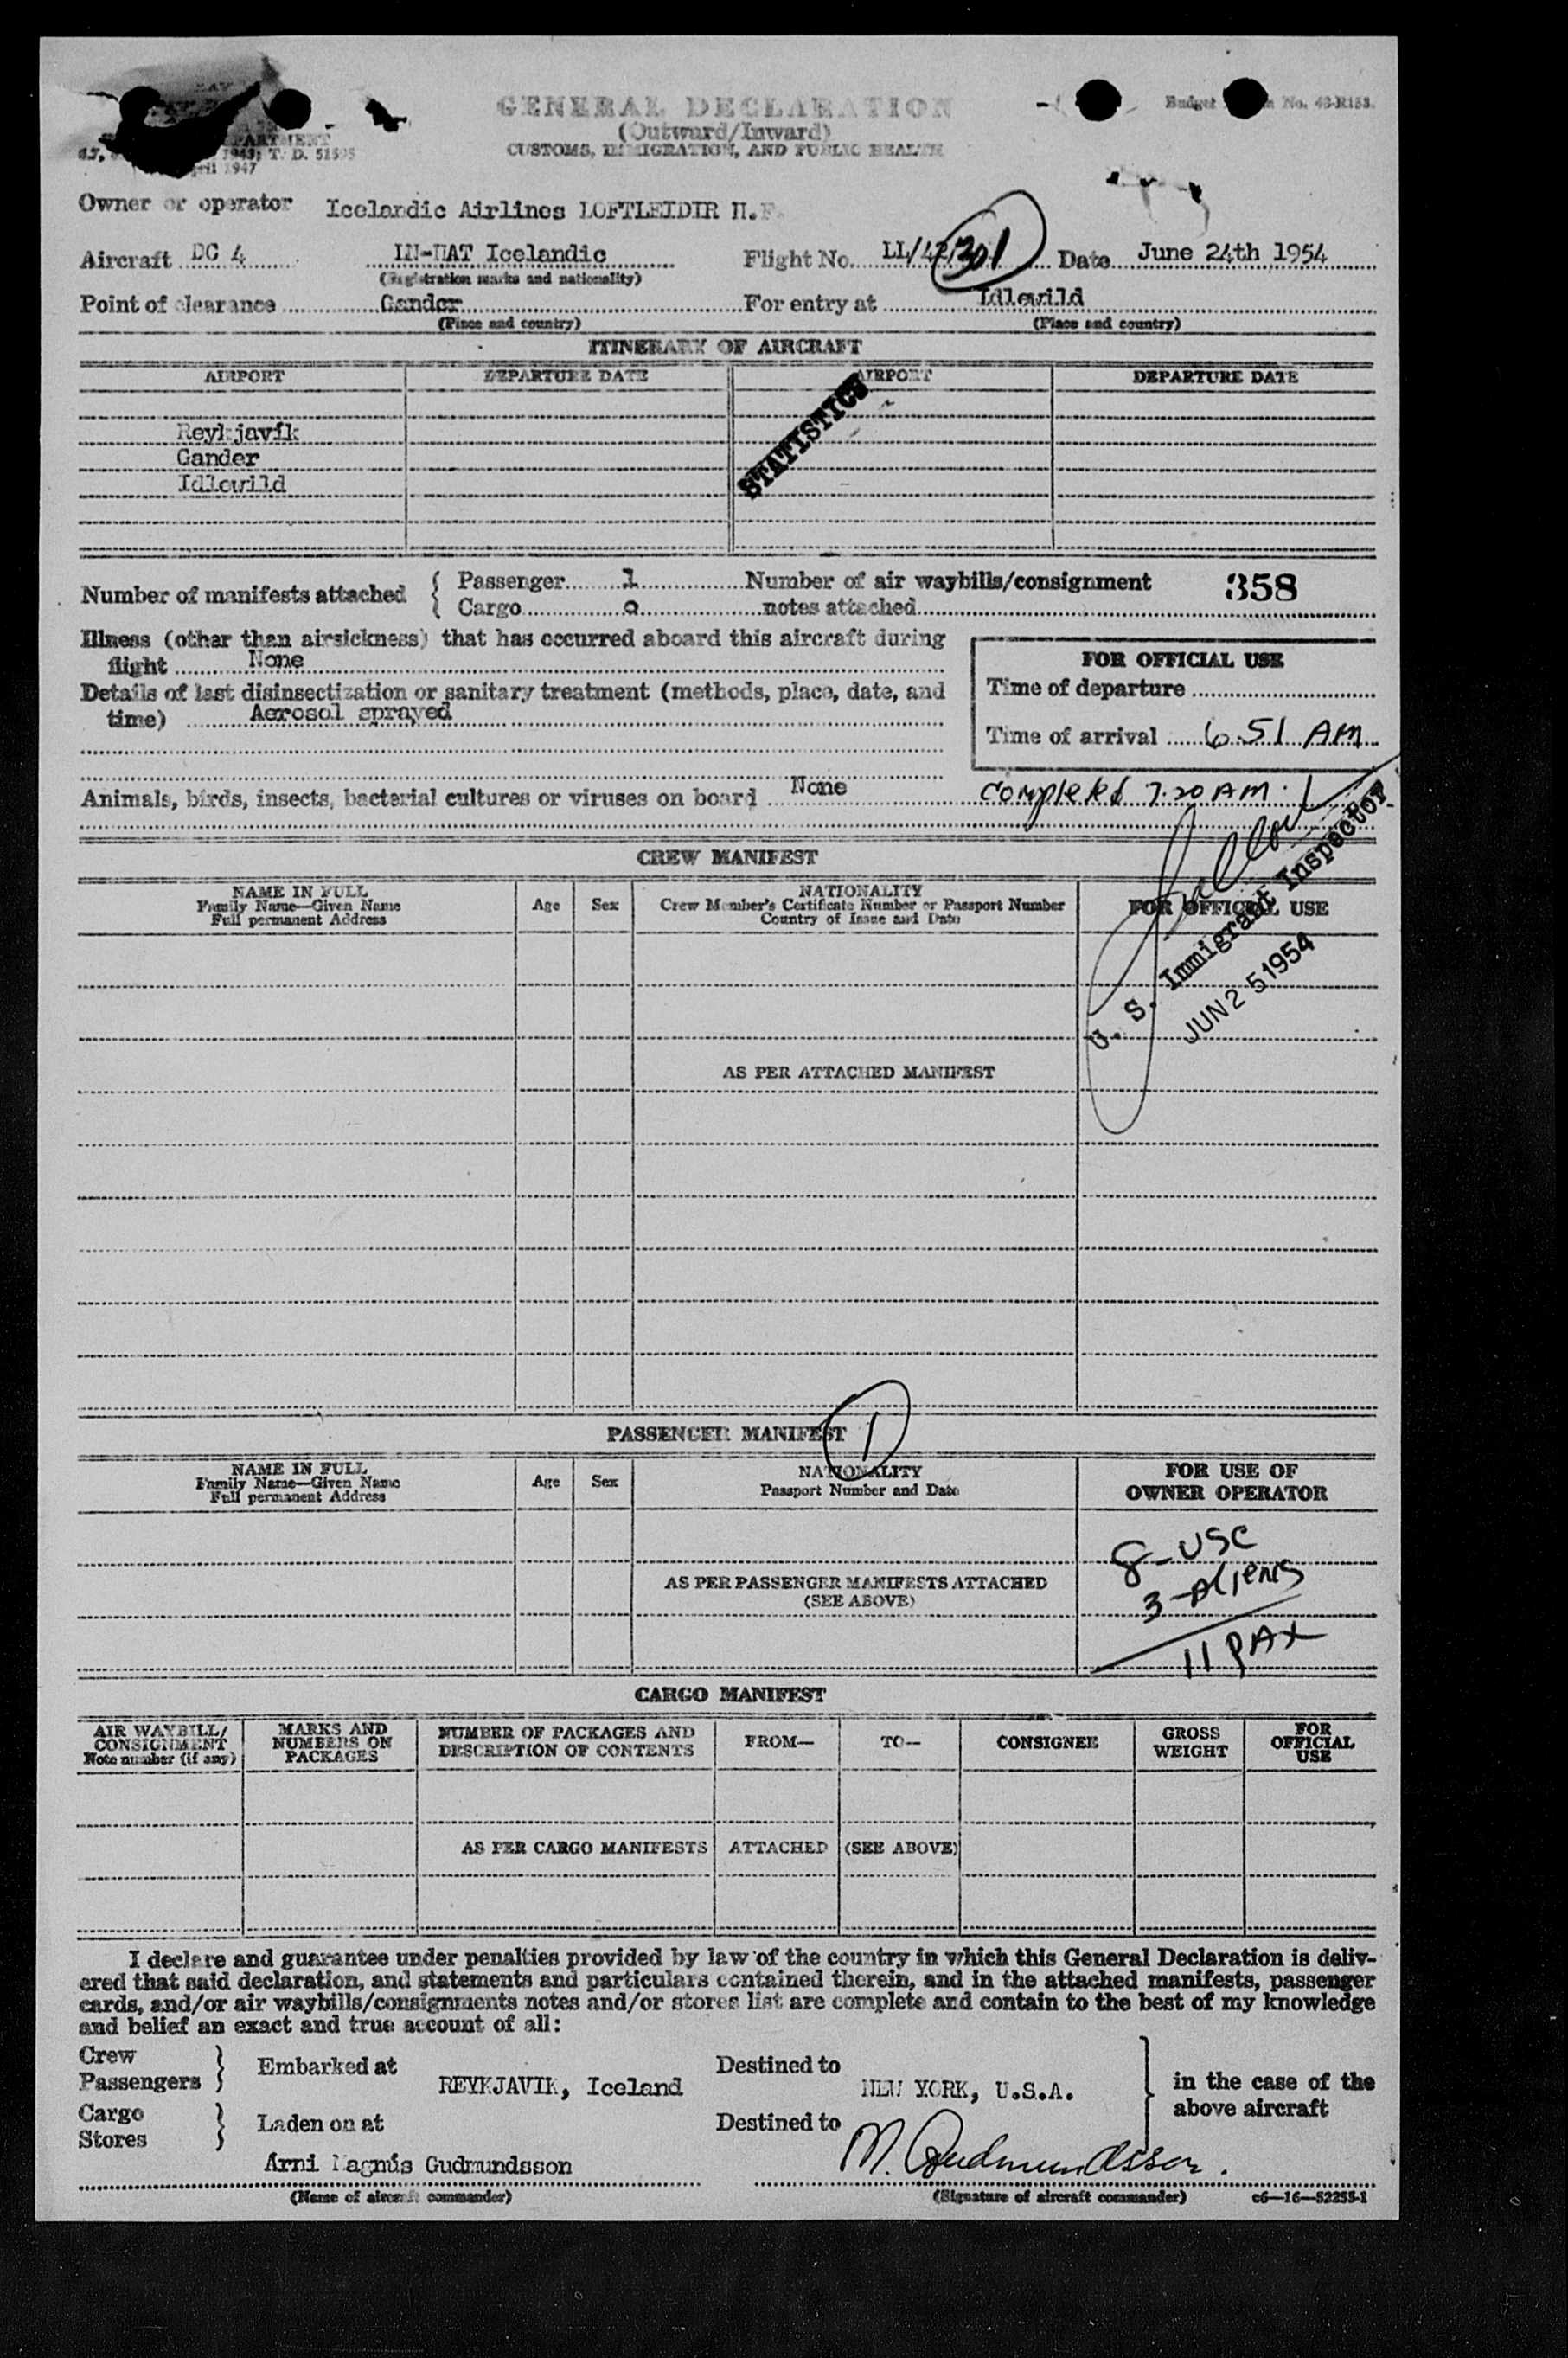 GENERAL DECLARATION
(Outward/Inward)
CUSTOMS, IMMIGRATION, AND PUBLIC HEALTH
Budget No. 43-R153.
1943; T. D. 51595
April 1947
Owner or operator Icelandic Airlines LOFTLEIDIR H.F.
Aircraft DC 4 Icelandic Flight No. 301 Date June 24th 1954
(Registration marks and nationality)
Point of clearance Gander For entry at Idlewild
(Place and country) (Place and country)
ITINERARY OF AIRCRAFT
AIRPORT DEPARTURE DATE AIRPORT DEPARTURE DATE
STATISTICS
Reykjavík
Gander
Idlewild
Number of manifests attached { Passenger 1 Number of air waybills/consignment 358
Cargo 0 notes attached
Illness (other than airsickness) that has occurred aboard this aircraft during
flight None
Details of last disinsectization or sanitary treatment (methods, place, date, and
time) Aerosol sprayed
FOR OFFICIAL USE
Time of departure
Time of arrival 6.51 AM
Animals, birds, insects, bacterial cultures or viruses on board None
completed 7.20 AM
CREW MANIFEST
NAME IN FULL
Family Name—Given Name
Full permanent Address
Age Sex
NATIONALITY
Crew Member's Certificate Number or Passport Number
Country of Issue and Date
FOR OFFICIAL USE
U. S. Immigrant Inspector
JUN 25 1954
AS PER ATTACHED MANIFEST
PASSENGER MANIFEST 1
NAME IN FULL
Family Name—Given Name
Full permanent Address
Age Sex
NATIONALITY
Passport Number and Date
FOR USE OF
OWNER OPERATOR
8-USC
3-Aliens
11 PAX
AS PER PASSENGER MANIFESTS ATTACHED
(SEE ABOVE)
CARGO MANIFEST
AIR WAYBILL/
CONSIGNMENT
Note number (if any)
MARKS AND
NUMBERS ON
PACKAGES
NUMBER OF PACKAGES AND
DESCRIPTION OF CONTENTS
FROM—
TO—
CONSIGNEE
GROSS
WEIGHT
FOR
OFFICIAL
USE
AS PER CARGO MANIFESTS ATTACHED (SEE ABOVE)
I declare and guarantee under penalties provided by law of the country in which this General Declaration is deliv-
ered that said declaration, and statements and particulars contained therein, and in the attached manifests, passenger
cards, and/or air waybills/consignments notes and/or stores list are complete and contain to the best of my knowledge
and belief an exact and true account of all:
Crew
Passengers } Embarked at REYKJAVIK, Iceland Destined to NEW YORK, U.S.A. } in the case of the
above aircraft
Cargo
Stores } Laden on at Destined to
Árni Magnús Gudmundsson M. Gudmundsson.
(Name of aircraft commander) (Signature of aircraft commander) c6—16—52255-1